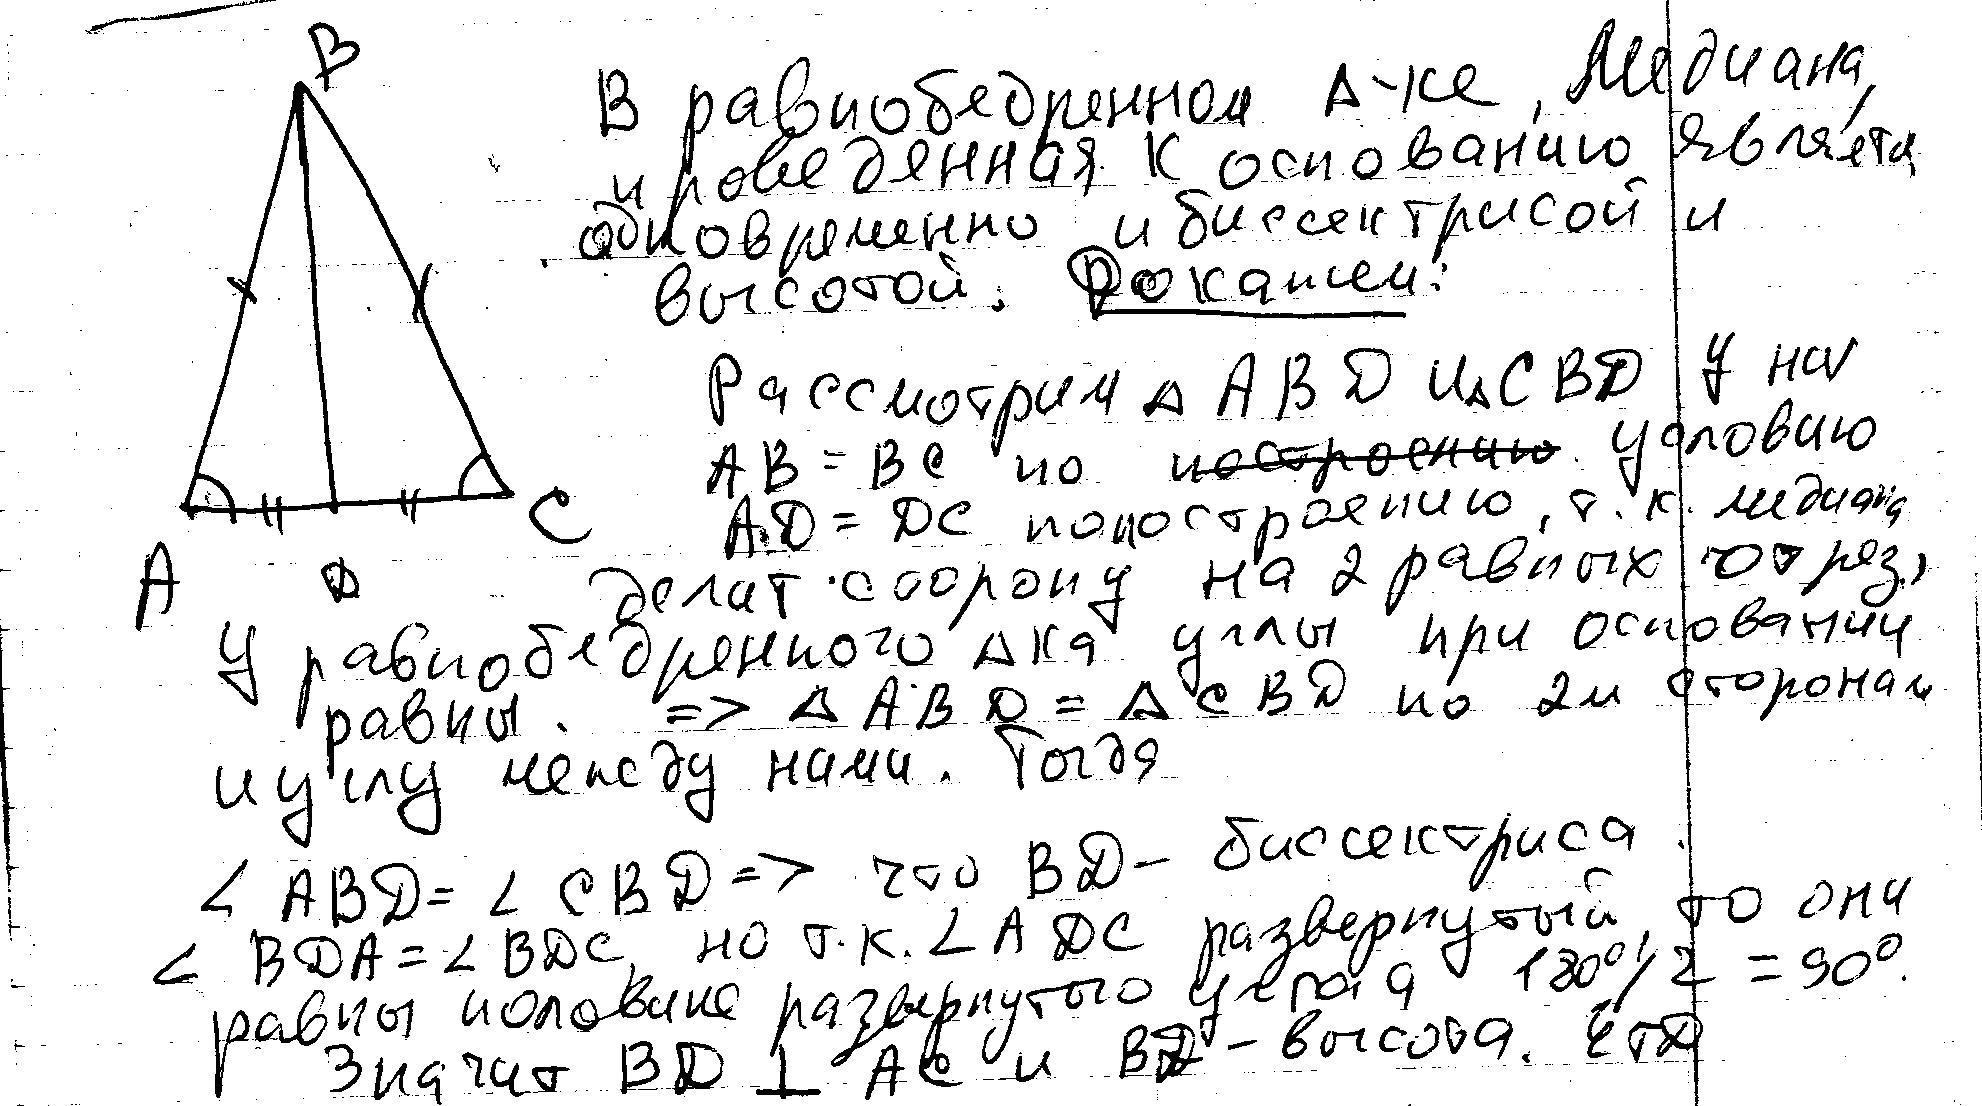 B
В равнобедренном Δ-ке, Медиана,
проведенная к основанию является
одновременно и биссектрисой и
высотой. Докажем:
Рассмотрим Δ ABD и Δ CBD У них
AB = BC по построению условию
AD = DC по построению, т.к. медиана
C
A
D
делит сторону на 2 равных отрез.,
У равнобедренного Δка углы при основании
равны. => Δ ABD = Δ CBD по 2м сторонам
и углу между ними. Тогда
∠ ABD = ∠ CBD => что BD - биссектриса.
∠ BDA = ∠ BDC, но т.к. ∠ ADC развернутый, то они
равны половине развернутого угла 180°/2 = 90°.
Значит BD ⊥ AC и BD - высота. ЧТД